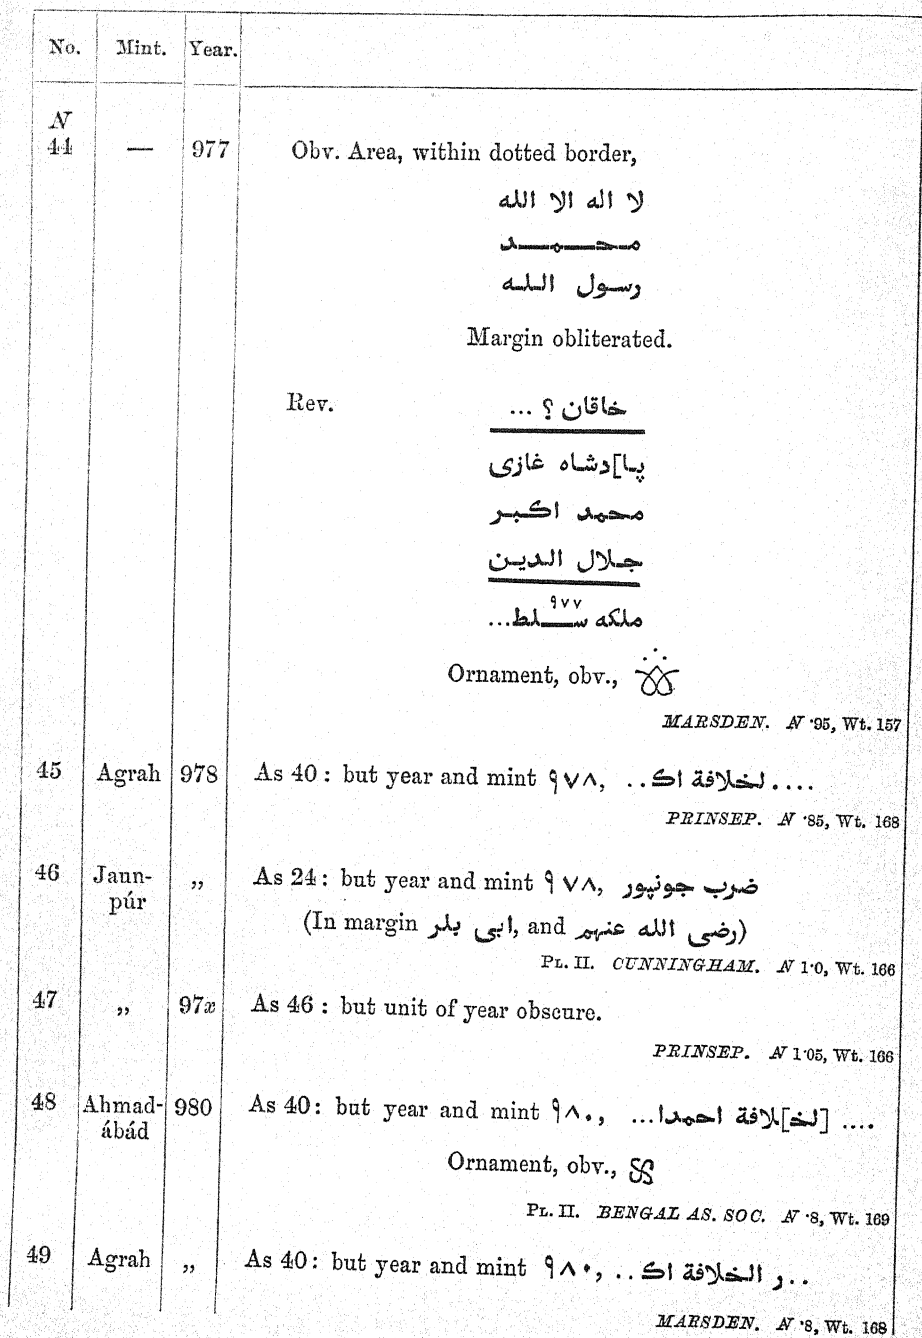 No. Mint. Year.
N
44 — 977 Obv. Area, within dotted border,
لا اله الا الله
محمد
رسول الله
Margin obliterated.
Rev. خاقان ؟ ...
پا]دشاه غازى
محمد اكبر
جلال الدين
٩٧٧
ملكه سلط...
Ornament, obv.,
MARSDEN. N ·95, Wt. 157
45 Agrah 978 As 40 : but year and mint ٩٧٨, ....لخلافة اك..
PRINSEP. N ·85, Wt. 168
46 Jaun- „ As 24 : but year and mint ٩٧٨, ضرب جونپور
púr (In margin ابى بلر, and رضى الله عنهم)
PL. II. CUNNINGHAM. N 1·0, Wt. 166
47 „ 97x As 46 : but unit of year obscure.
PRINSEP. N 1·05, Wt. 166
48 Ahmad- 980 As 40 : but year and mint ٩٨٠, .... [لخ]لافة احمدا...
ábád
Ornament, obv.,
PL. II. BENGAL AS. SOC. N ·8, Wt. 169
49 Agrah „ As 40 : but year and mint ٩٨٠, ..ر الخلافة اك..
MARSDEN. N ·8, Wt. 168